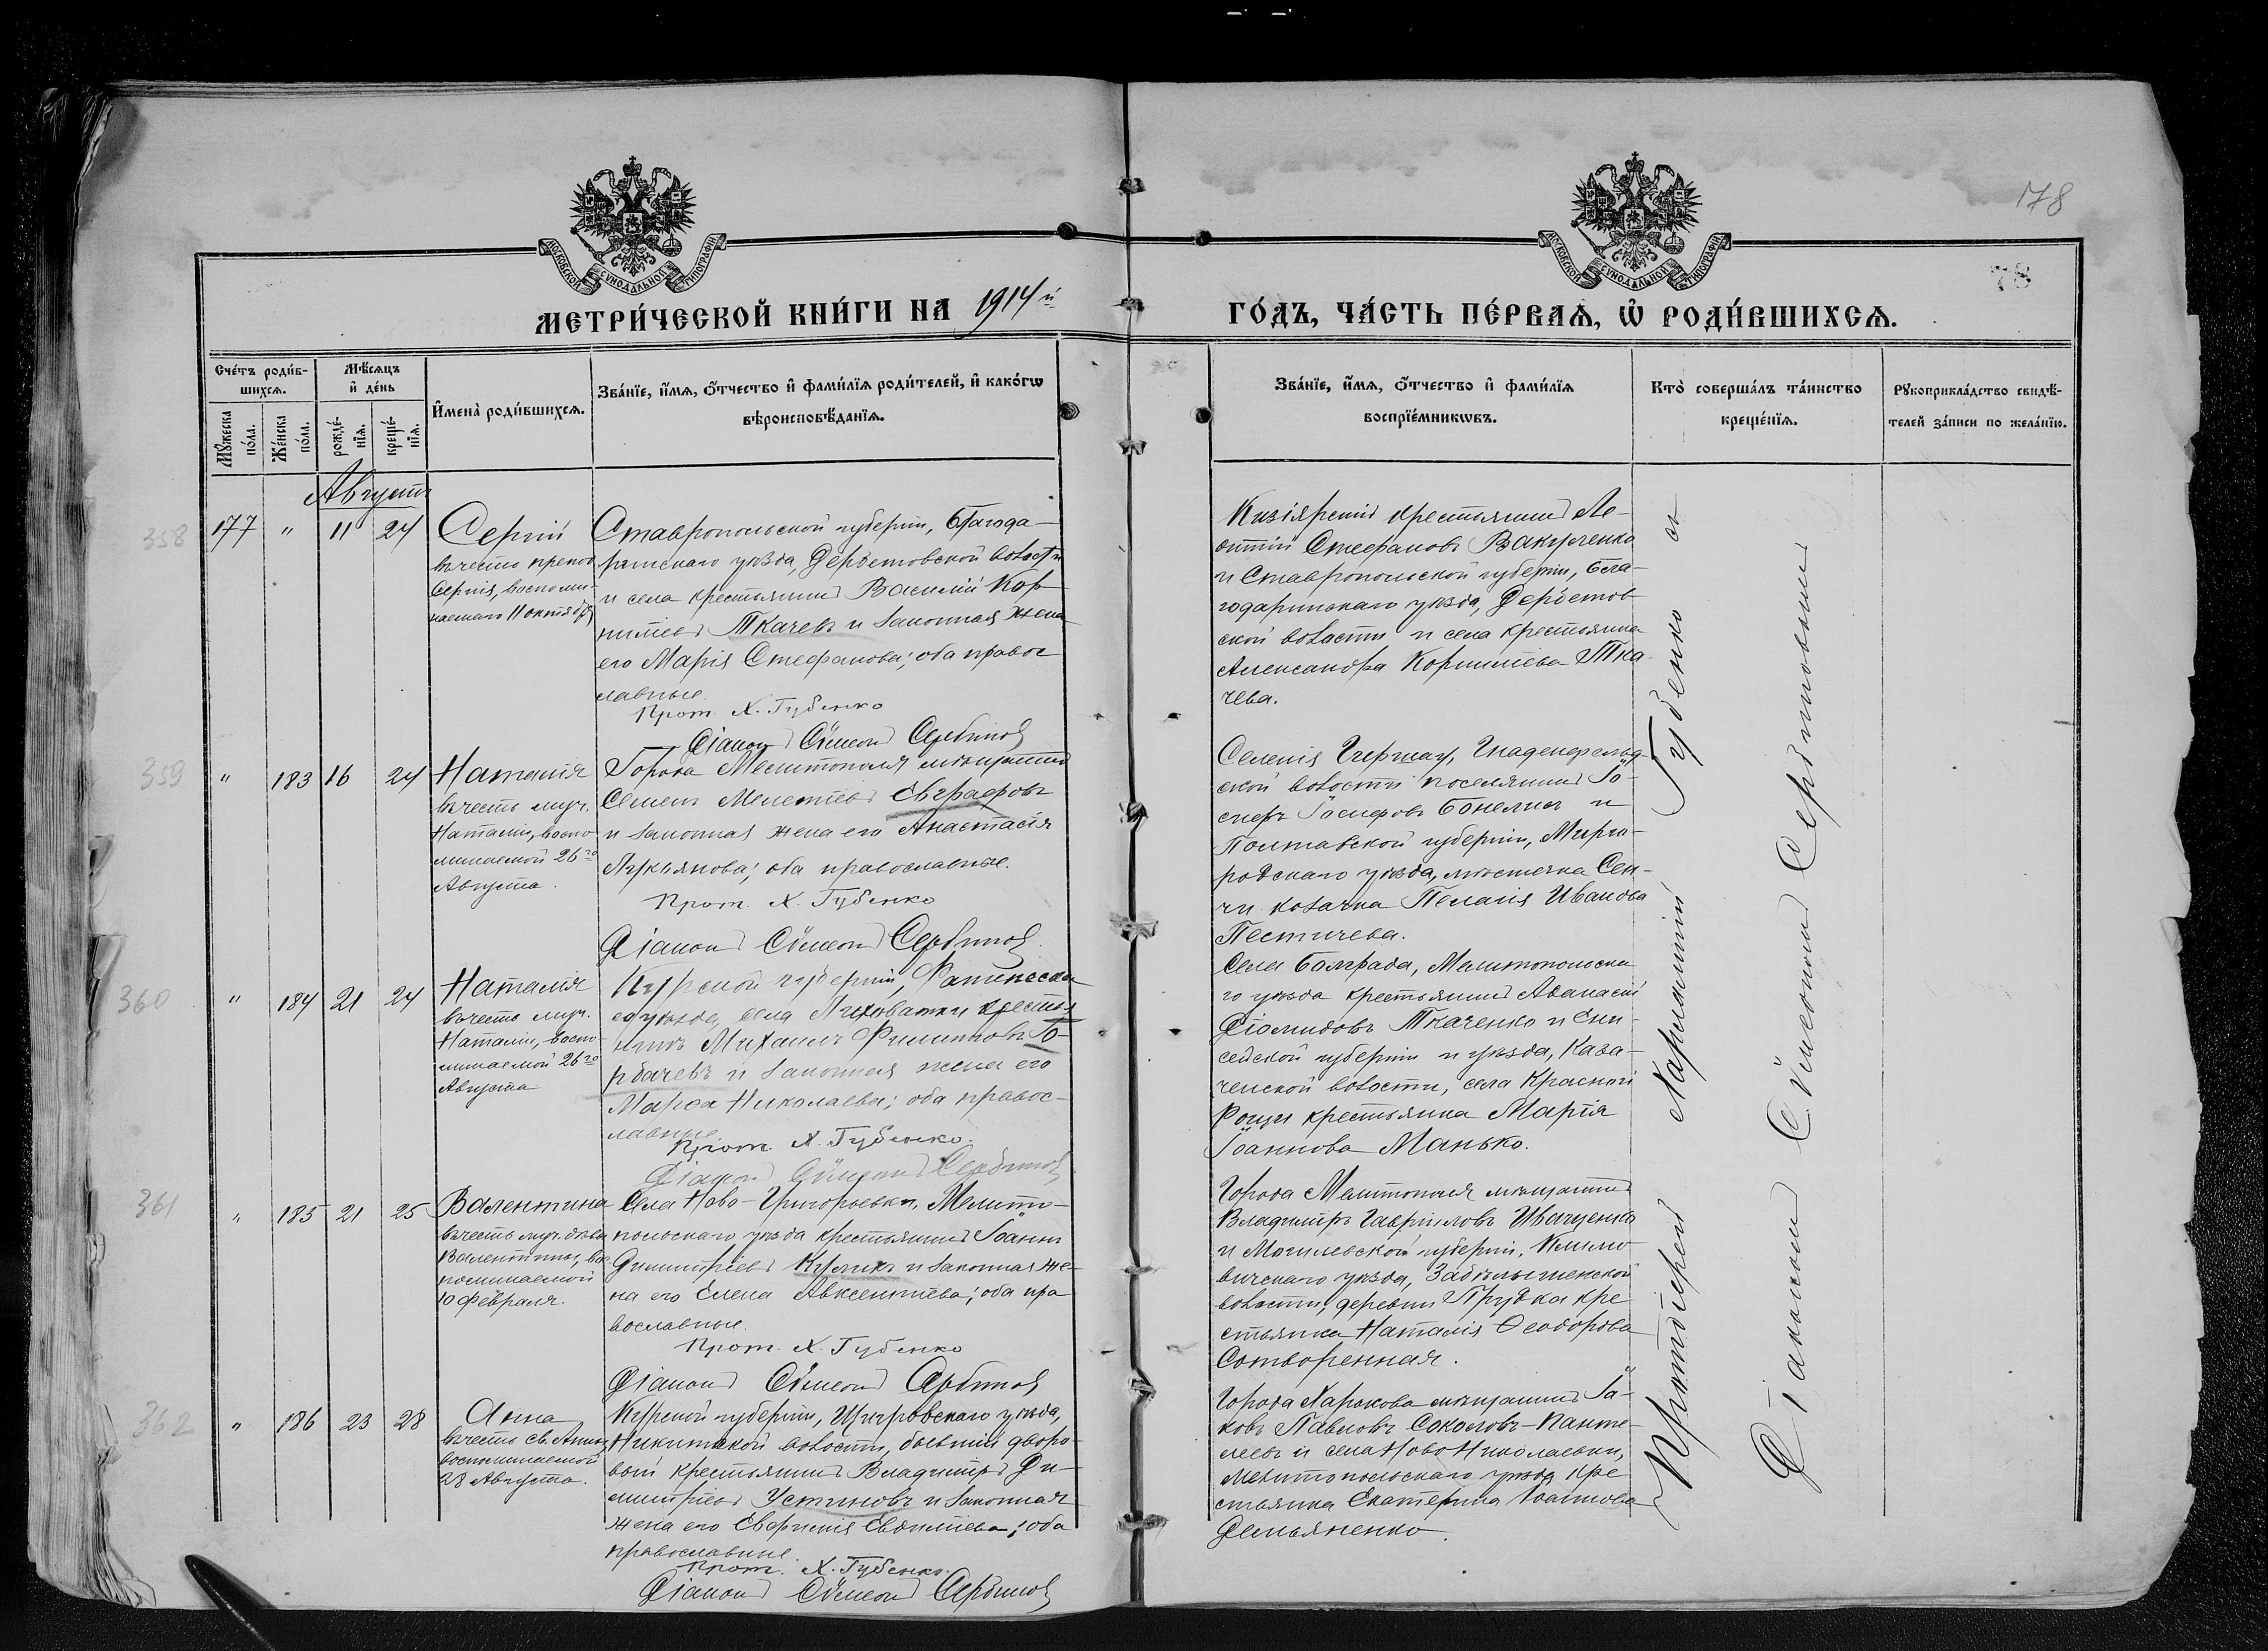 178
78
МОСКОВСКОЙ СУНОДАЛЬНОЙ ТИПОГРАФІИ
МОСКОВСКОЙ СУНОДАЛЬНОЙ ТИПОГРАФІИ
МЕТРИ́ЧЕСКОЙ КНИ́ГИ НА 1914 й
ГО́ДЪ, ЧА́СТЬ ПЕ́РВАѦ, Ѽ РОДИ́ВШИХСѦ.
Сче́тъ роди́в-
шихсѧ.
Мꙋ́жеска
по́ла.
Же́нска
по́ла.
Мѣ́сѧцъ
и҆ де́нь
рожде́-
нїѧ.
креще́-
нїѧ.
И҆мена̀ роди́вшихсѧ.
Зва́нїе, и҆́мѧ, ѻ҆́тчество и҆ фами́лїѧ роди́телей, и҆ како́гѡ
вѣроисповѣ́данїѧ.
Зва́нїе, и҆́мѧ, ѻ҆́тчество и҆ фами́лїѧ
воспрїе́мникѡвъ.
Кто̀ соверша́лъ та́инство
креще́нїѧ.
Рꙋкоприкла́дство свидѣ́-
телей за́писи по жела́нїю.
Августъ
358
177 " 11 24
Сергій
въ честь препод
Сергія, воспоми-
наемаго 11 октября
Ставропольской губерніи, Благода-
ринскаго уѣзда, Дербетовской волости
и села крестьянинъ Василій Кор-
ниліевъ Ткачевъ и законная жена
его Марія Стефанова; оба правос
лавные
Прот. Х. Губенко
Діаконъ Сѵмеонъ Сербиновъ
Кизіярскій крестьянинъ Ле-
онтій Стефановъ Вакуленко
и Ставропольской губерніи, Бла-
годаринскаго уѣзда, Дербетов
ской волости и села крестьянка
Александра Корниліева Тка-
чева.
359
" 183 16 24
Наталія
въ честь муч.
Наталіи, воспо-
минаемой 26го
Августа.
Города Мелитополя мѣщанинъ
Семенъ Мелетіевъ Евграфовъ
и законная жена его Анастасія
Лукьянова; оба православные.
Прот. Х. Губенко
Діаконъ Сѵмеонъ Сербиновъ
Селенія Гиршау, Гнаденфельд-
ской волости поселянинъ Іо-
сифъ Іосифовъ Бонелисъ и
Полтавской губерніи, Мирго-
родскаго уѣзда, мѣстечка Сен-
чи козачка Пелагія Иванова
Пестичева.
360
" 184 21 24
Наталія
въ честь муч.
Наталіи, воспо-
минаемой 26го
Августа
Курской губерніи, Фатежска
го уѣзда, села Линоватки крестья
нинъ Михаилъ Филипповъ Го-
рбачевъ и законная жена его
Марѳа Николаева; оба правос-
лавные
Прот. Х. Губенко.
Діаконъ Сѵмеонъ Сербиновъ
Села Болграда, Мелитопольска
го уѣзда крестьянинъ Аѳанасій
Діомидовъ Ткаченко и Ени-
сейской губерніи и уѣзда, Каза-
чинской волости, села Красной
Рощи крестьянка Марія
Іоаннова Манько.
361
" 185 21 25
Валентина
въ честь муч. дѣвы
Валентины, вос
поминаемой
10 февраля.
Села Ново-Григорьевки, Мелито-
польскаго уѣзда крестьянинъ Іоаннъ
Димитріевъ Куликъ и законная же-
на его Елена Авксентіева; оба пра
вославные.
Прот. Х. Губенко
Діаконъ Сѵмеонъ Сербиновъ
Города Мелитополя мѣщанинъ
Владиміръ Гавріиловъ Иващенко
и Могилевской губерніи, Климо
вичскаго уѣзда, Забѣлышенской
волости, деревни Прудка кре
стьянка Наталія Ѳеодорова
Сотворенная.
362
" 186 23 28
Анна
въ честь св. Анны
воспоминаемой
28 Августа.
Курской губерніи, Щигровскаго уѣзда,
Никитской волости, бывшій дворо-
вый крестьянинъ Владиміръ Ди-
митріевъ Устиновъ и законная
жена его Евфимія Евдокіева; оба
православные.
Прот. Х. Губенко.
Діаконъ Сѵмеонъ Сербиновъ
Города Харькова мѣщанинъ Іа-
ковъ Павловъ Соколовъ-Панте-
леевъ и села Ново Николаевки,
Мелитопольскаго уѣзда кре
стьянка Екатерина Іоаннова
Демьяненко.
Протоіерей Харлампій Губенко съ
Діакономъ Сѵмеономъ Сербиновымъ